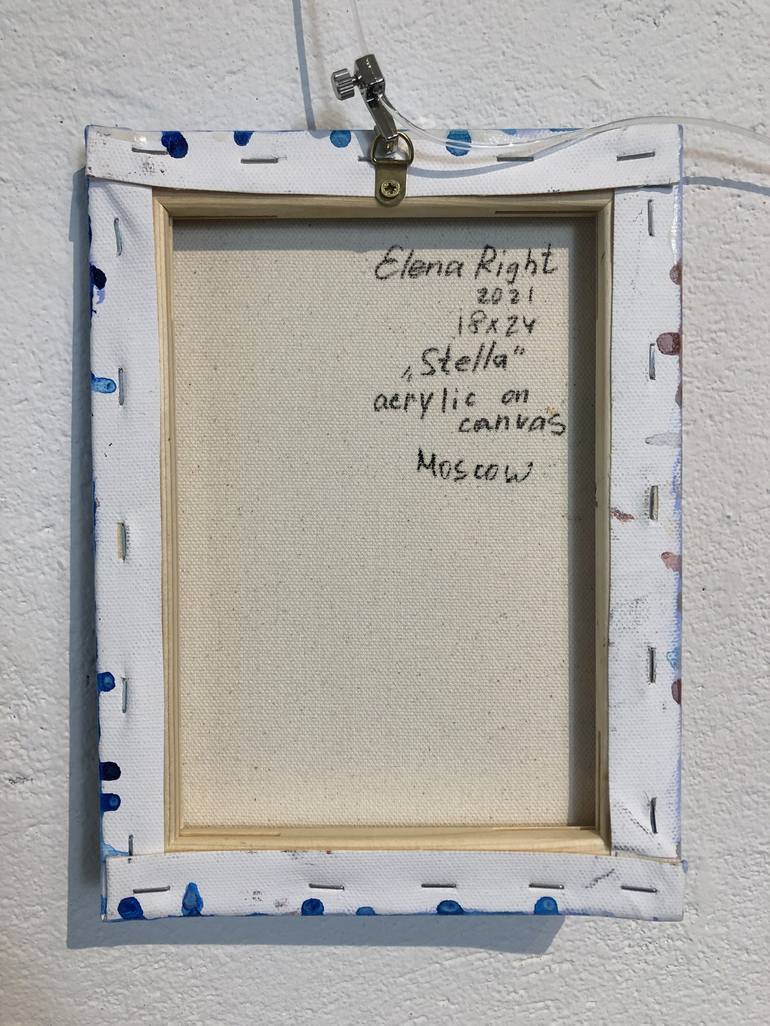 Elena Right
2021
18x24
„Stella”
acrylic on
canvas
Moscow